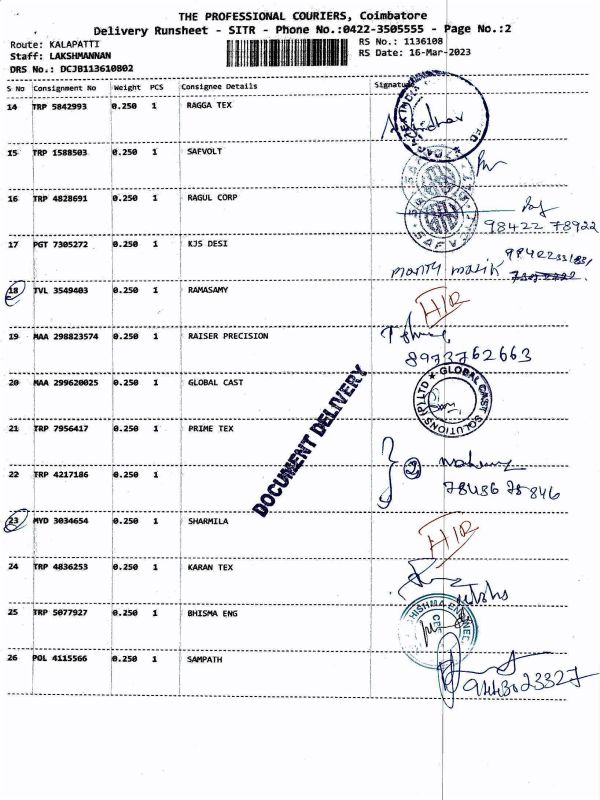 THE PROFESSIONAL COURIERS, Coimbatore
Delivery Runsheet - SITR - Phone No.:0422-3505555 - Page No.:2
Route: KALAPATTI RS No.: 1136108
Staff: LAKSHMANNAN RS Date: 16-Mar-2023
DRS No.: DCJB113610802
S No Consignment No Weight PCS Consignee Details Signature
14 TRP 5842993 0.250 1 RAGGA TEX
15 TRP 1588503 0.250 1 SAFVOLT
16 TRP 4828691 0.250 1 RAGUL CORP
98422 78922
17 PGT 7305272 0.250 1 KJS DESI
18 TVL 3549403 0.250 1 RAMASAMY
19 MAA 298823574 0.250 1 RAISER PRECISION
8973762663
20 MAA 299620025 0.250 1 GLOBAL CAST
GLOBAL CAST SOLUTIONS (P) LTD
DOCUMENT DELIVERY
21 TRP 7956417 0.250 1 PRIME TEX
22 TRP 4217186 0.250 1
2
23 MYD 3034654 0.250 1 SHARMILA
24 TRP 4836253 0.250 1 KARAN TEX
25 TRP 5077927 0.250 1 BHISMA ENG
26 POL 4115566 0.250 1 SAMPATH
9443023327